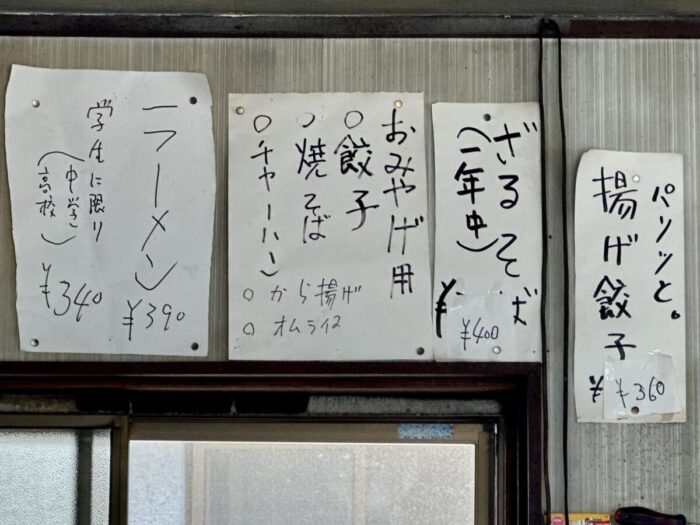 パリッと。
揚げ餃子
¥ ¥360
ざるそば
(一年中)
¥ ¥400
おみやげ用
○餃子
○焼そば
○チャーハン
○から揚げ
○オムライス
ラーメン
¥390
学生に限り
(中学
高校)
¥340